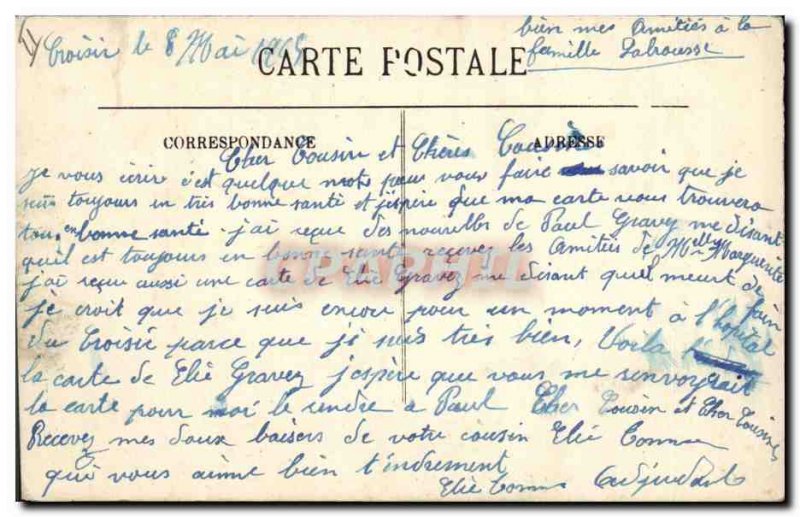 Croisic le 8 Mai 1915
bien mes Amitiés à la
famille Labrousse
CARTE POSTALE
CORRESPONDANCE
ADRESSE
Cher Cousin et Chères Cousines
Je vous écrir c'est quelque mots pour vous faire savoir que je
suis toujours en très bonne santé et j'espère que ma carte vous trouvera
tous en bonne santé. j'ai reçue des nouvelles de Paul Gravez me disant
qu'il est toujours en bonne santé recevez les Amitiés de Melle Marguerite
j'ai reçue aussi une carte de Elie Gravez me disant quel meurt de faim
je croit que je suis encore pour un moment à l'hopital
du Croisic parce que je suis très bien, Voila
la carte de Elie Gravez j'espère que vous me renvoyrait
la carte pour moi le rendre a Paul Cher Cousin et Cher Cousines
Recevez mes doux baisers de votre cousin Elie
qui vous aime bien t'endrement
Elie